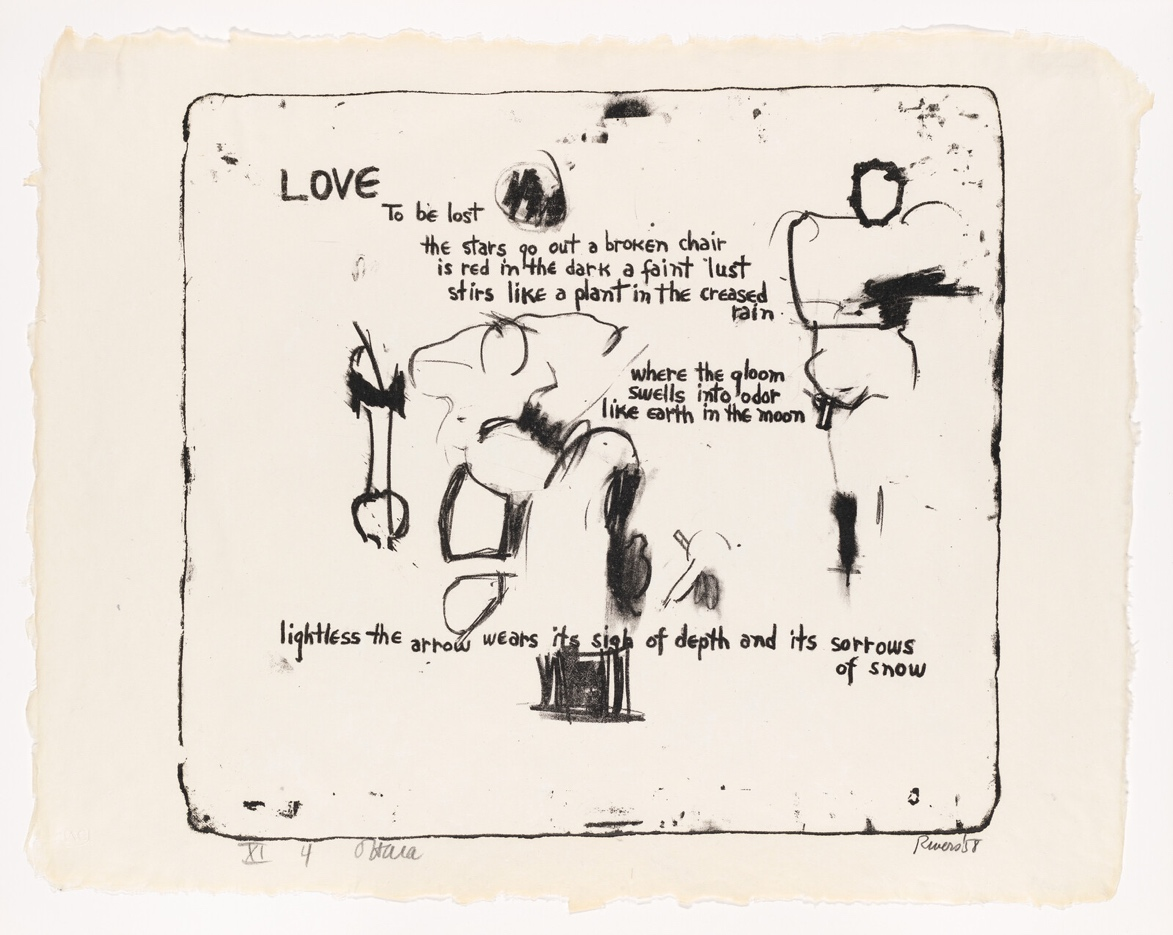 LOVE
To be lost
the stars go out a broken chair
is red in the dark a faint lust
stirs like a plant in the creased
rain
where the gloom
swells into odor
like earth in the moon
lightless the arrow wears its sigh of depth and its sorrows
of snow
XI 4 O'Hara
Rivers '58